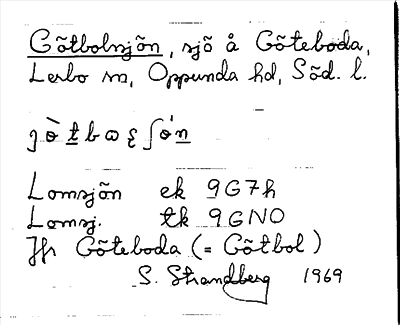 Götbolsjön, sjö å Göteboda,
Lerbo sn, Oppunda hd, Söd. l.
Lomsjön ek 9G7h
Lomsj. tk 9GNO
Jfr Göteboda (= Götbol)
S. Strandberg 1969